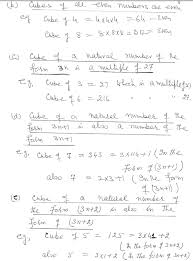 (b) Cubes of all even numbers are even
eg Cube of 4 = 4x4x4 = 64 - Even
Cube of 8 = 8x8x8 = 512 - Even
(c) Cube of a natural number of the
form 3n is a multiple of 27
eg Cube of 3 = 27 which is a multiple of 27
Cube of 6 = 216 " " 27
(d) Cube of a natural number of the
form 3n+1 is also a number of the
form 3n+1
eg, Cube of 7 = 343 = 3x114+1 (In the
form of (3n+1))
also 7 = 3x2+1 (In the form
of (3n+1))
(e) Cube of a natural number of
the form (3n+2) is also in the
form of (3n+2)
eg, Cube of 5 = 125 = 3x41+2
(In the form of 3n+2)
also 5 = 3x1+2 (In the form of 3n+2)